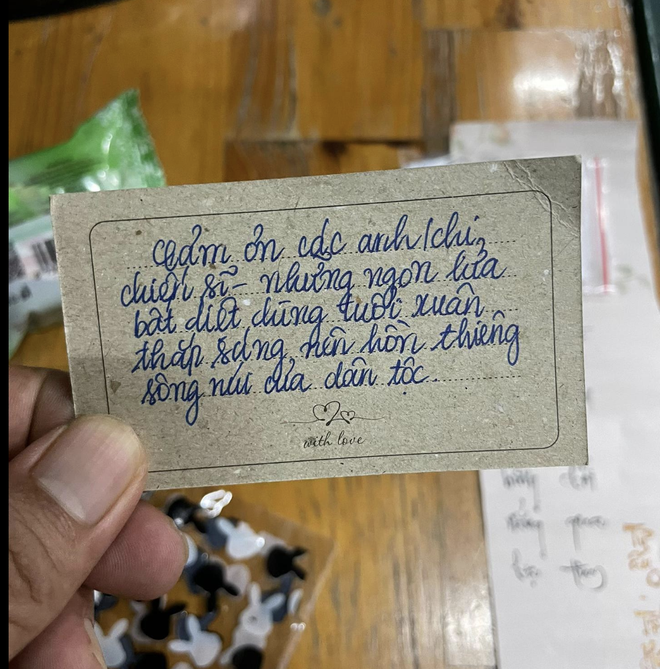 Cảm ơn các anh/chị,
chiến sĩ - những ngọn lửa
bất diệt, dùng tuổi xuân
thắp sáng nên hồn thiêng
sông núi của dân tộc.
with love